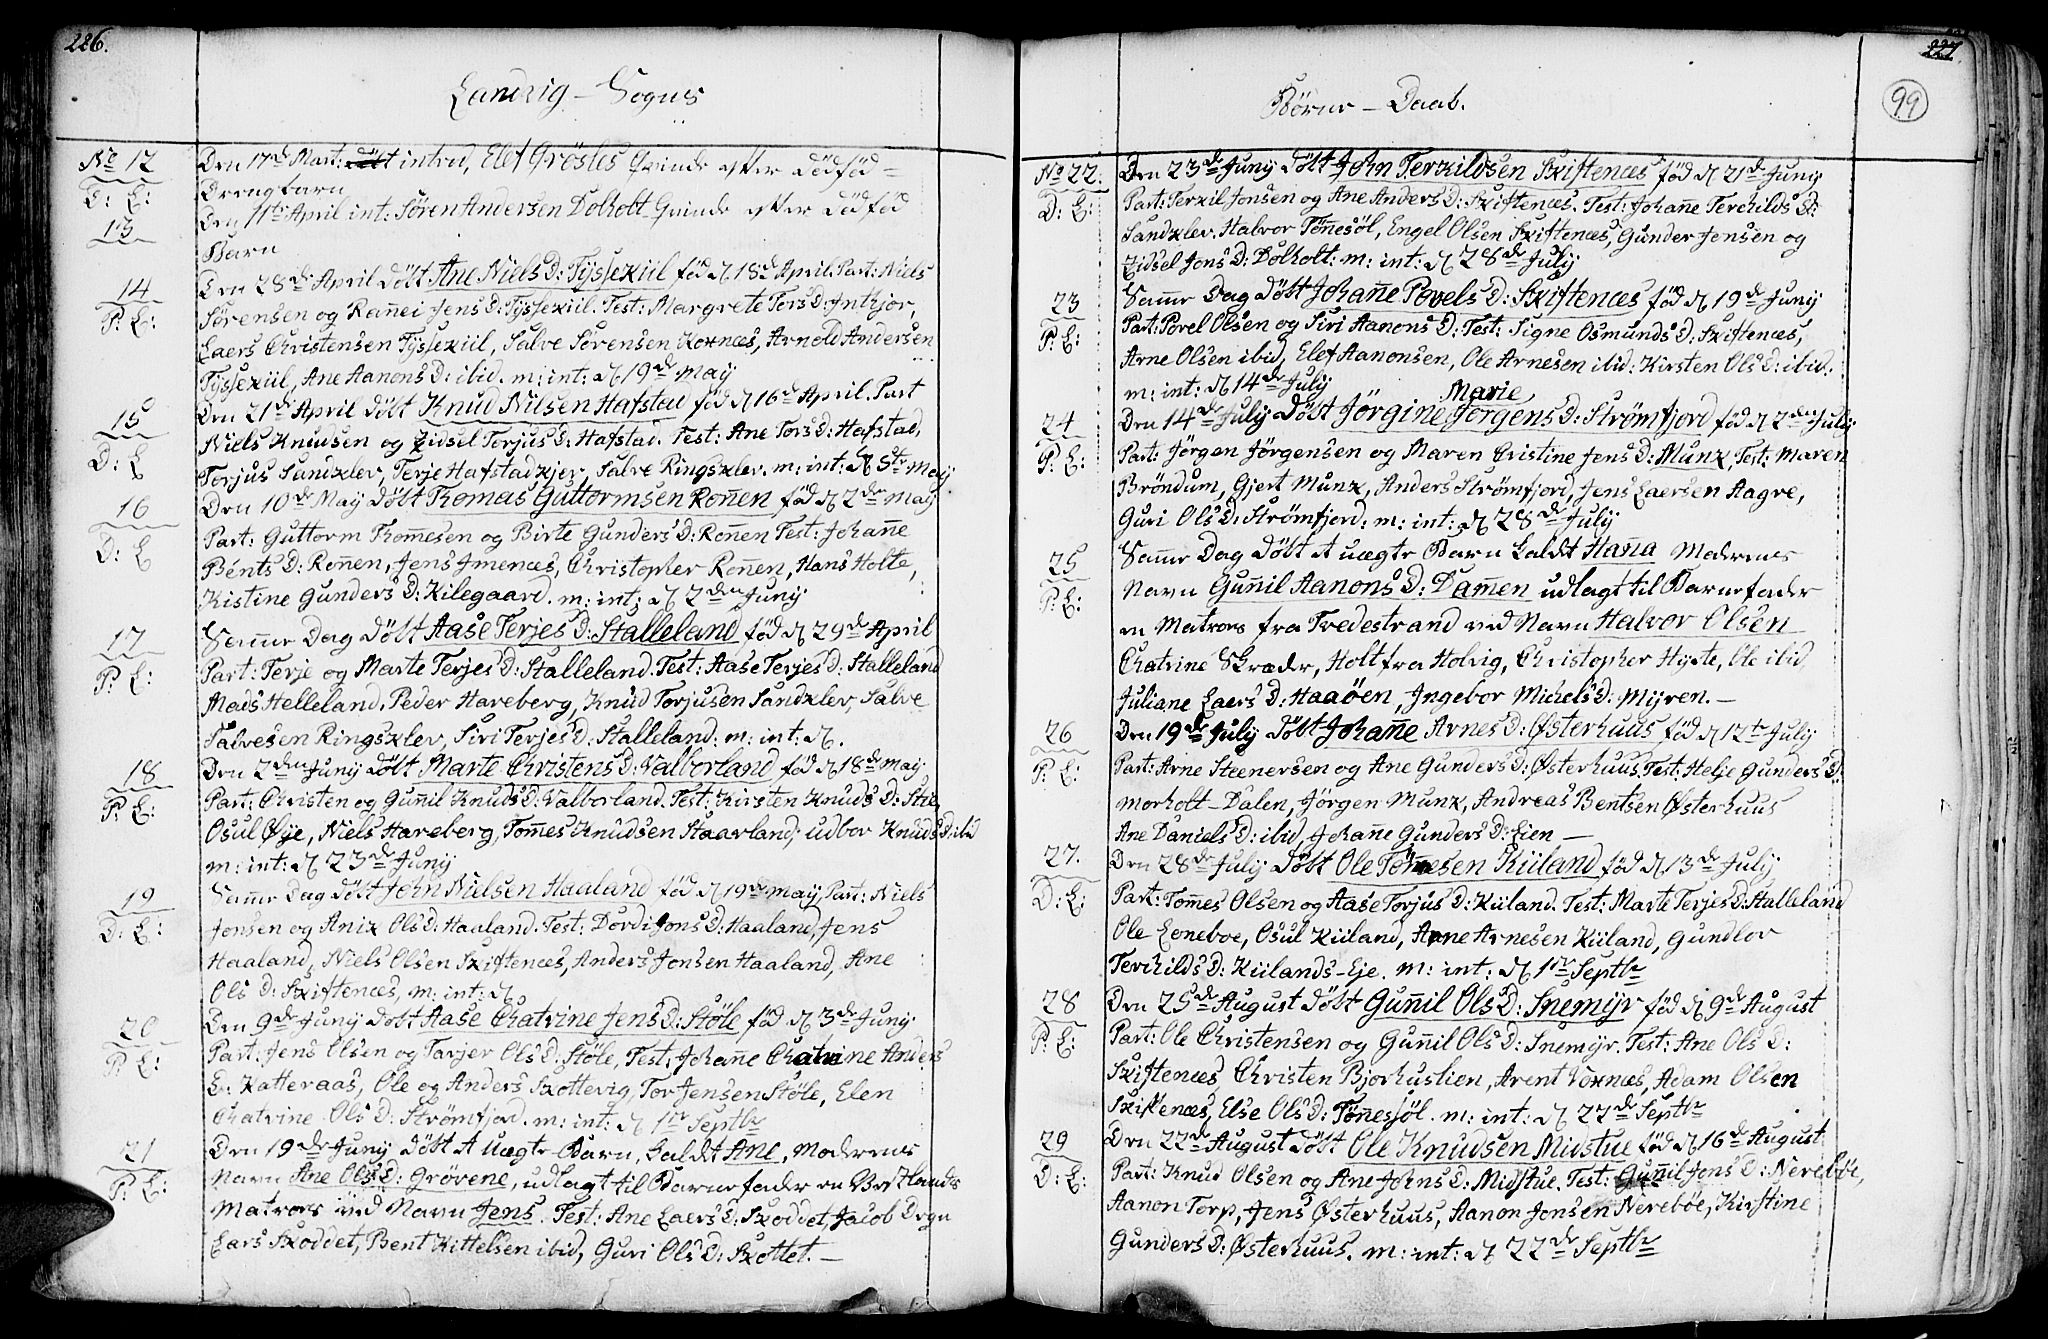 226.
Landvig - Sogns
No 12 Den 17de Mart: intred, Elef Grösles Qvinde efter dödföd
D: E: Drengbarn
13 Den 11te April int: Sören Andersen Dolholt Qvinde efter dödföd
Barn
14 Den 28de April döbt Ane Niels D: Tyssekiil föd d 18de April. Part: Niels
P: E: Sörensen og Ranei Jens D: Tyssekiil. Test: Margrete Tors D: Inthjor,
Laers Christensen Tyssekiil, Salve Sörensen Koxnæs, Arnold Andersen
Tyssekiil, Ane Aanons D: ibid. m: int: d 19de May
15 Den 21de April döbt Knud Nilsen Hafstad föd d 16de April. Part
D: E Niels Knudsen og Zidsel Torjus D: Hafstad. Test: Ane Tors D: Hafstad,
Torjus Sandklev, Terje Hafstadkjer, Salve Ringsklev. m: int: d 5te May
16 Den 10de May döbt Thomas Guttormsen Ronen föd d 2den May
D: E Part: Guttorm Thomesen og Birte Gunders D: Ronen Test: Johane
Bents D: Ronen, Jens Imenæs, Christopher Ronen, Hans Holte,
Kistine Gunders D: Kilegaard. m: int: d 2den Juny
17 Same Dag döbt Aase Terjes D: Stalleland föd d 29de April
P: E: Part: Terje og Marte Terjes D: Stalleland. Test: Aase Terjes D: Stalleland
Mads Helleland, Peder Hareberg, Knud Torjusen Sandklev, Salve
Salvesen Ringsklev, Siri Terjes D: Stalleland. m: int: d.
18 Den 2den Juny döbt Marte Christens D: Valborland föd d 18de May
P: E: Part: Christen og Gunil Knuds D: Valborland. Test: Kirsten Knuds D: Stie
Osul Øye, Niels Hareberg, Tomes Knudsen Staarland, udbor Knuds D: ibid
m: int: d 23de Juny
19 Same Dag döbt John Nielsen Haaland föd d 19de May, Part: Niels
D: E: Jonsen og Anix Ols D: Haaland. Test: Dordi Jons D: Haaland, Jens
Haaland, Niels Olsen Skiftenæs, Anders Jonsen Haaland, Ane
Ols D: Skiftenæs, m: int: d
20 Den 9de Juny döbt Aase Chatrine Jens D: Støle föd d 3de Juny
P: E: Part: Jens Olsen og Tarjer Ols D: Støle, Test: Johane Chatrine Anders
D: Katteraas, Ole og Anders Skottevig, Tor Jensen Støle, Elen
Chatrine Ols D: Strömfjord. m: int: d 1te Septbr
21 Den 19de Juny döbt et uægte Barn, kaldt Ane, Moderens
P: E: Navn Ane Ols D: Grövene, udlagt til Barnefader en Vestlands
Matros ved Navn Jens. Test: Ane Laers D: Skoddet, Jacob Dregn
Lars Skoddet, Bent Kittelsen ibid, Guri Ols D: Skottet. —
227
99
Börne - Daab.
No 22. Den 23de Juny döbt John Terkildsen Skiftenæs föd d 21de Juny
D: E: Part: Terkil Jonsen og Ane Anders D: Skiftenæs. Test: Johane Terchilds D:
Sandklev. Halvor Tönesöl, Engel Olsen Skiftenæs, Gunder Jensen og
Zidsel Jons D: Dolholt: m: int: d 28de July
23 Same Dag döbt Johane Povels D: Skiftenæs föd d 19de Juny
P: E: Part: Povel Olsen og Siri Aanons D: Test: Signe Osmunds D: Skiftenæs,
Arne Olsen ibid, Elef Aanonsen, Ole Arnesen ibid: Kirsten Ols D: ibid.
m: int: d 14de July
Marie
24 Den 14de July döbt Jörgine Jörgens D: Strömfjord föd d 2den July
P: E: Part: Jörgen Jörgensen og Maren Cristine Jens D: Munk, Test: Maren
Bröndum, Gjert Munk, Anders Strömfjord, Jens Laersen Aagre,
Guri Ols D: Strömfjord. m: int: d 28de July
25 Same Dag döbt et uægte Barn kaldt Hana Moderens
P: E: Navn Gunil Aanons D: Damen udlagt til Barnefader
en Matros fra Tvedestrand ved Navn Halvor Olsen
Chatrine Skræder, Holt fra Holvig, Christopher Hyste, Ole ibid,
Juliane Laers D: Haaöen, Ingebor Michels D: Myren. —
26 Den 19de July döbt Johane Arnes D: Østerhuus föd d 12te July
P: E: Part: Arne Steenersen og Ane Gunders D: Østerhuus. Test: Helje Gunders D:
Morholt-Dalen, Jörgen Munk, Andreas Bentsen Østerhuus
Ane Daniels D: ibid, Johane Gunders D: Lien —
27. Den 28de July döbt Ole Tömesen Kiiland föd d 13de July
D: E: Part: Tomes Olsen og Aase Torjus D: Kiiland. Test: Marte Terjes D: Stalleland
Ole Loneboe, Osul Kiiland, Arne Arnesen Kiiland, Gundlov
Terchilds D: Kiilands-Eje. m: int: d 1te Septbr
28 Den 25de August döbt Gunil Ols D: Snemyr föd d 9de August
P: E: Part: Ole Christensen og Gunil Ols D: Snemyr. Test: Ane Ols D:
Skiftenæs, Christen Bjorhustien, Arent Voxnæs, Adam Olsen
Skiftenæs, Else Ols D: Tönesjöl. m: int: d 22de Septbr
29 Den 22de August döbt Ole Knudsen Midstue föd d 16de August
D: E: Part: Knud Olsen og Ane Johns D: Midstue. Test: Gunil Jons D: Nereböe,
Aanon Torp, Jens Østerhuus, Aanon Jonsen Nereböe, Kirstine
Gunders D: Østerhuus. m: int: d 22de Septbr